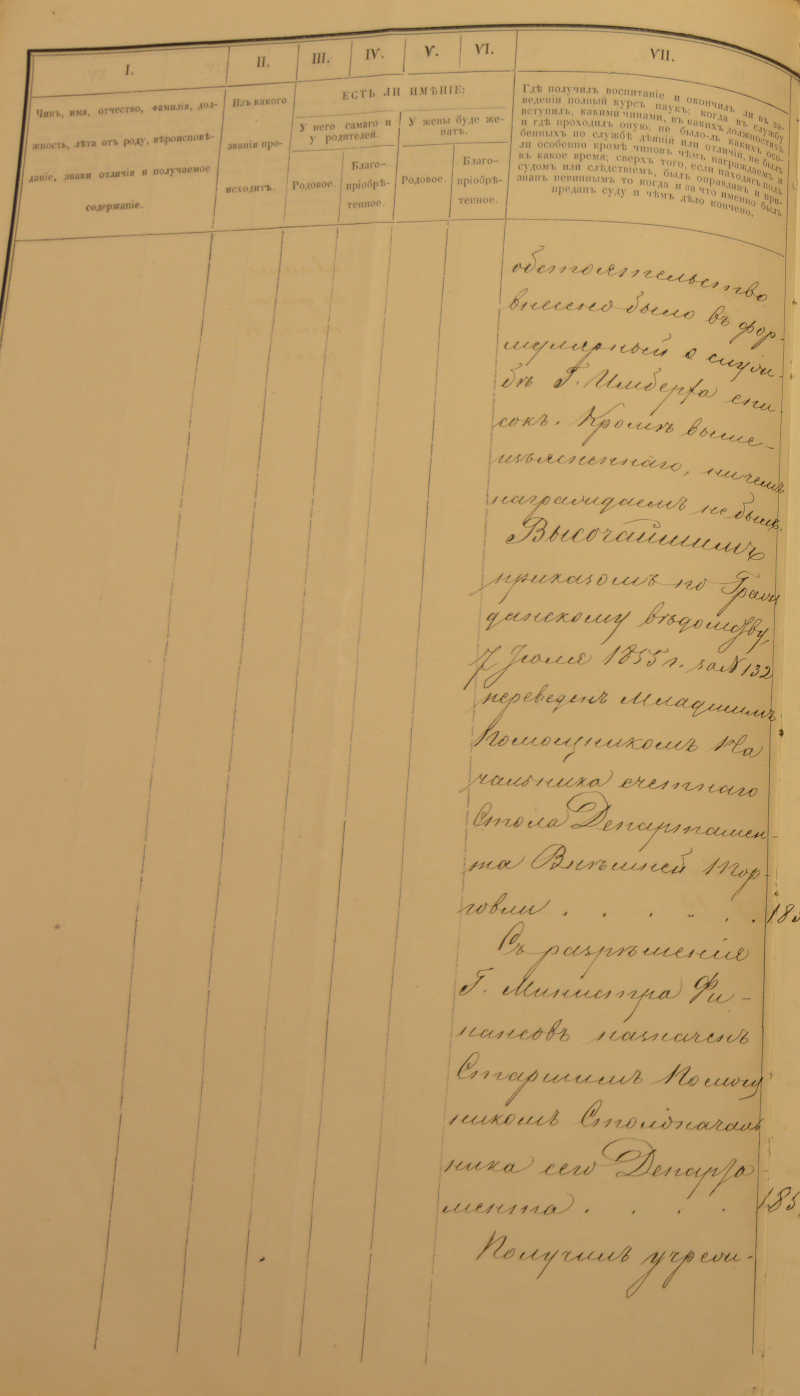 I.
II.
III.
IV.
V.
VI.
VII.
Чинъ, имя, отчество, фамилія, дол-
жность, лѣта отъ роду, вѣроисповѣ-
даніе, знаки отличія и получаемое
содержаніе.
Изъ какого
званія про-
исходитъ.
ЕСТЬ ЛИ ИМѢНІЕ:
У него самаго и
у родителей.
У жены буде же-
натъ.
Родовое.
Благо-
пріобрѣ-
тенное.
Родовое.
Благо-
пріобрѣ-
тенное.
Гдѣ получилъ воспитаніе и окончилъ ли въ за-
веденіи полный курсъ наукъ; когда въ службу
вступилъ, какими чинами, въ какихъ должностяхъ
и гдѣ проходилъ оную, не было-ль какихъ осо-
бенныхъ по службѣ дѣяній или отличій, не былъ
ли особенно кромѣ чиновъ чѣмъ награждаемъ и
въ какое время; сверхъ того, если находясь подъ
судомъ или слѣдствіемъ, былъ оправданъ и при-
знанъ невиннымъ то когда и за что именно былъ
преданъ суду и чѣмъ дѣло кончено.
обстоятельство
внесено было въ фор-
мулярный о служ-
бѣ Г. Имберга спи
сокъ. Кромѣ выше-
изъясненнаго, ничемъ
награждаемъ не былъ.
Высочайшимъ
приказомъ по Граж
данскому вѣдомству
7 Іюля 1855 г. за № 132
переведенъ Младшимъ
Помощникомъ На
чальника счетнаго
Стола Департамен-
та Внѣшней Тор-
говли . . . . . 185
Съ разрѣшенія
Г. Министра Фи-
нансовъ назначенъ
Старшимъ Помощ
никомъ Столоначаль
ника сего Департа
мента . . . . 185
Получилъ учреж-